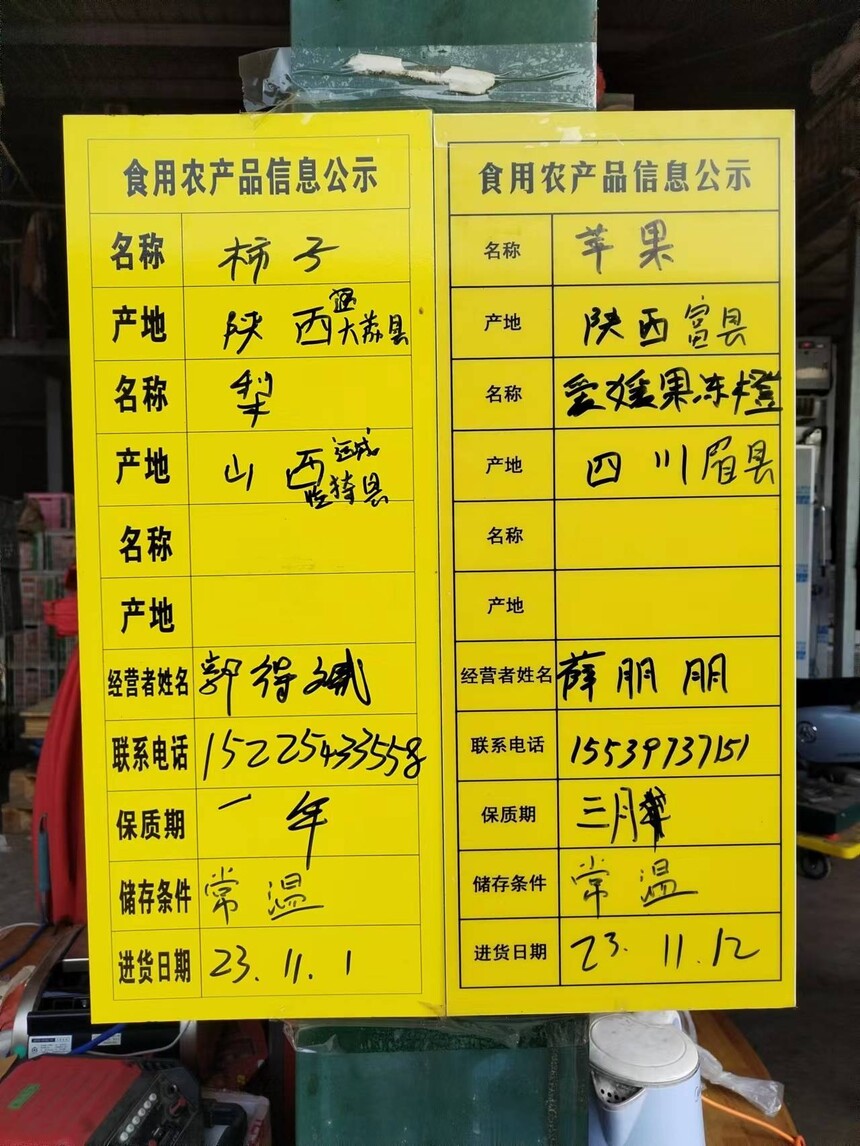 食用农产品信息公示
名称 柿子
产地 陕西 大荔县
名称 梨
产地 山西 运城
县
名称
产地
经营者姓名 郭得斌
联系电话 15225433558
保质期 一年
储存条件 常温
进货日期 23.11.1
食用农产品信息公示
名称 苹果
产地 陕西富县
名称 爱媛果冻橙
产地 四川眉县
名称
产地
经营者姓名 薛朋朋
联系电话 15539737151
保质期 三月
储存条件 常温
进货日期 23.11.12